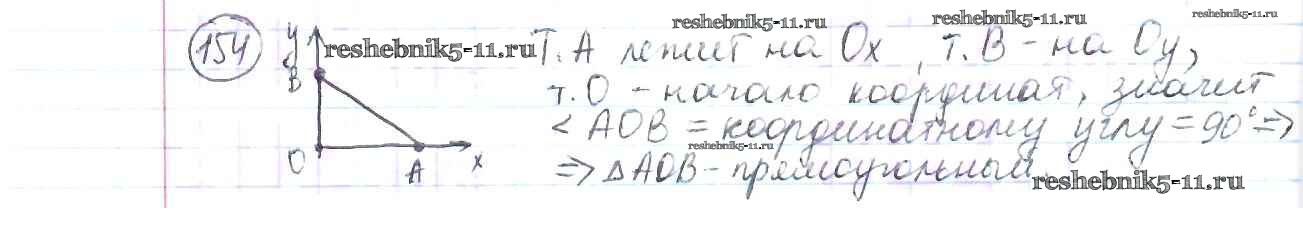 reshebnik5-11.ru reshebnik5-11.ru reshebnik5-11.ru
154 y reshebnik5-11.ru Т. А лежит на Ox, т. B - на Oy,
B т. О - начало координат, значит
< AOB = координатному углу = 90° =>
reshebnik5-11.ru
O A x => △AOB - прямоугольный.
reshebnik5-11.ru